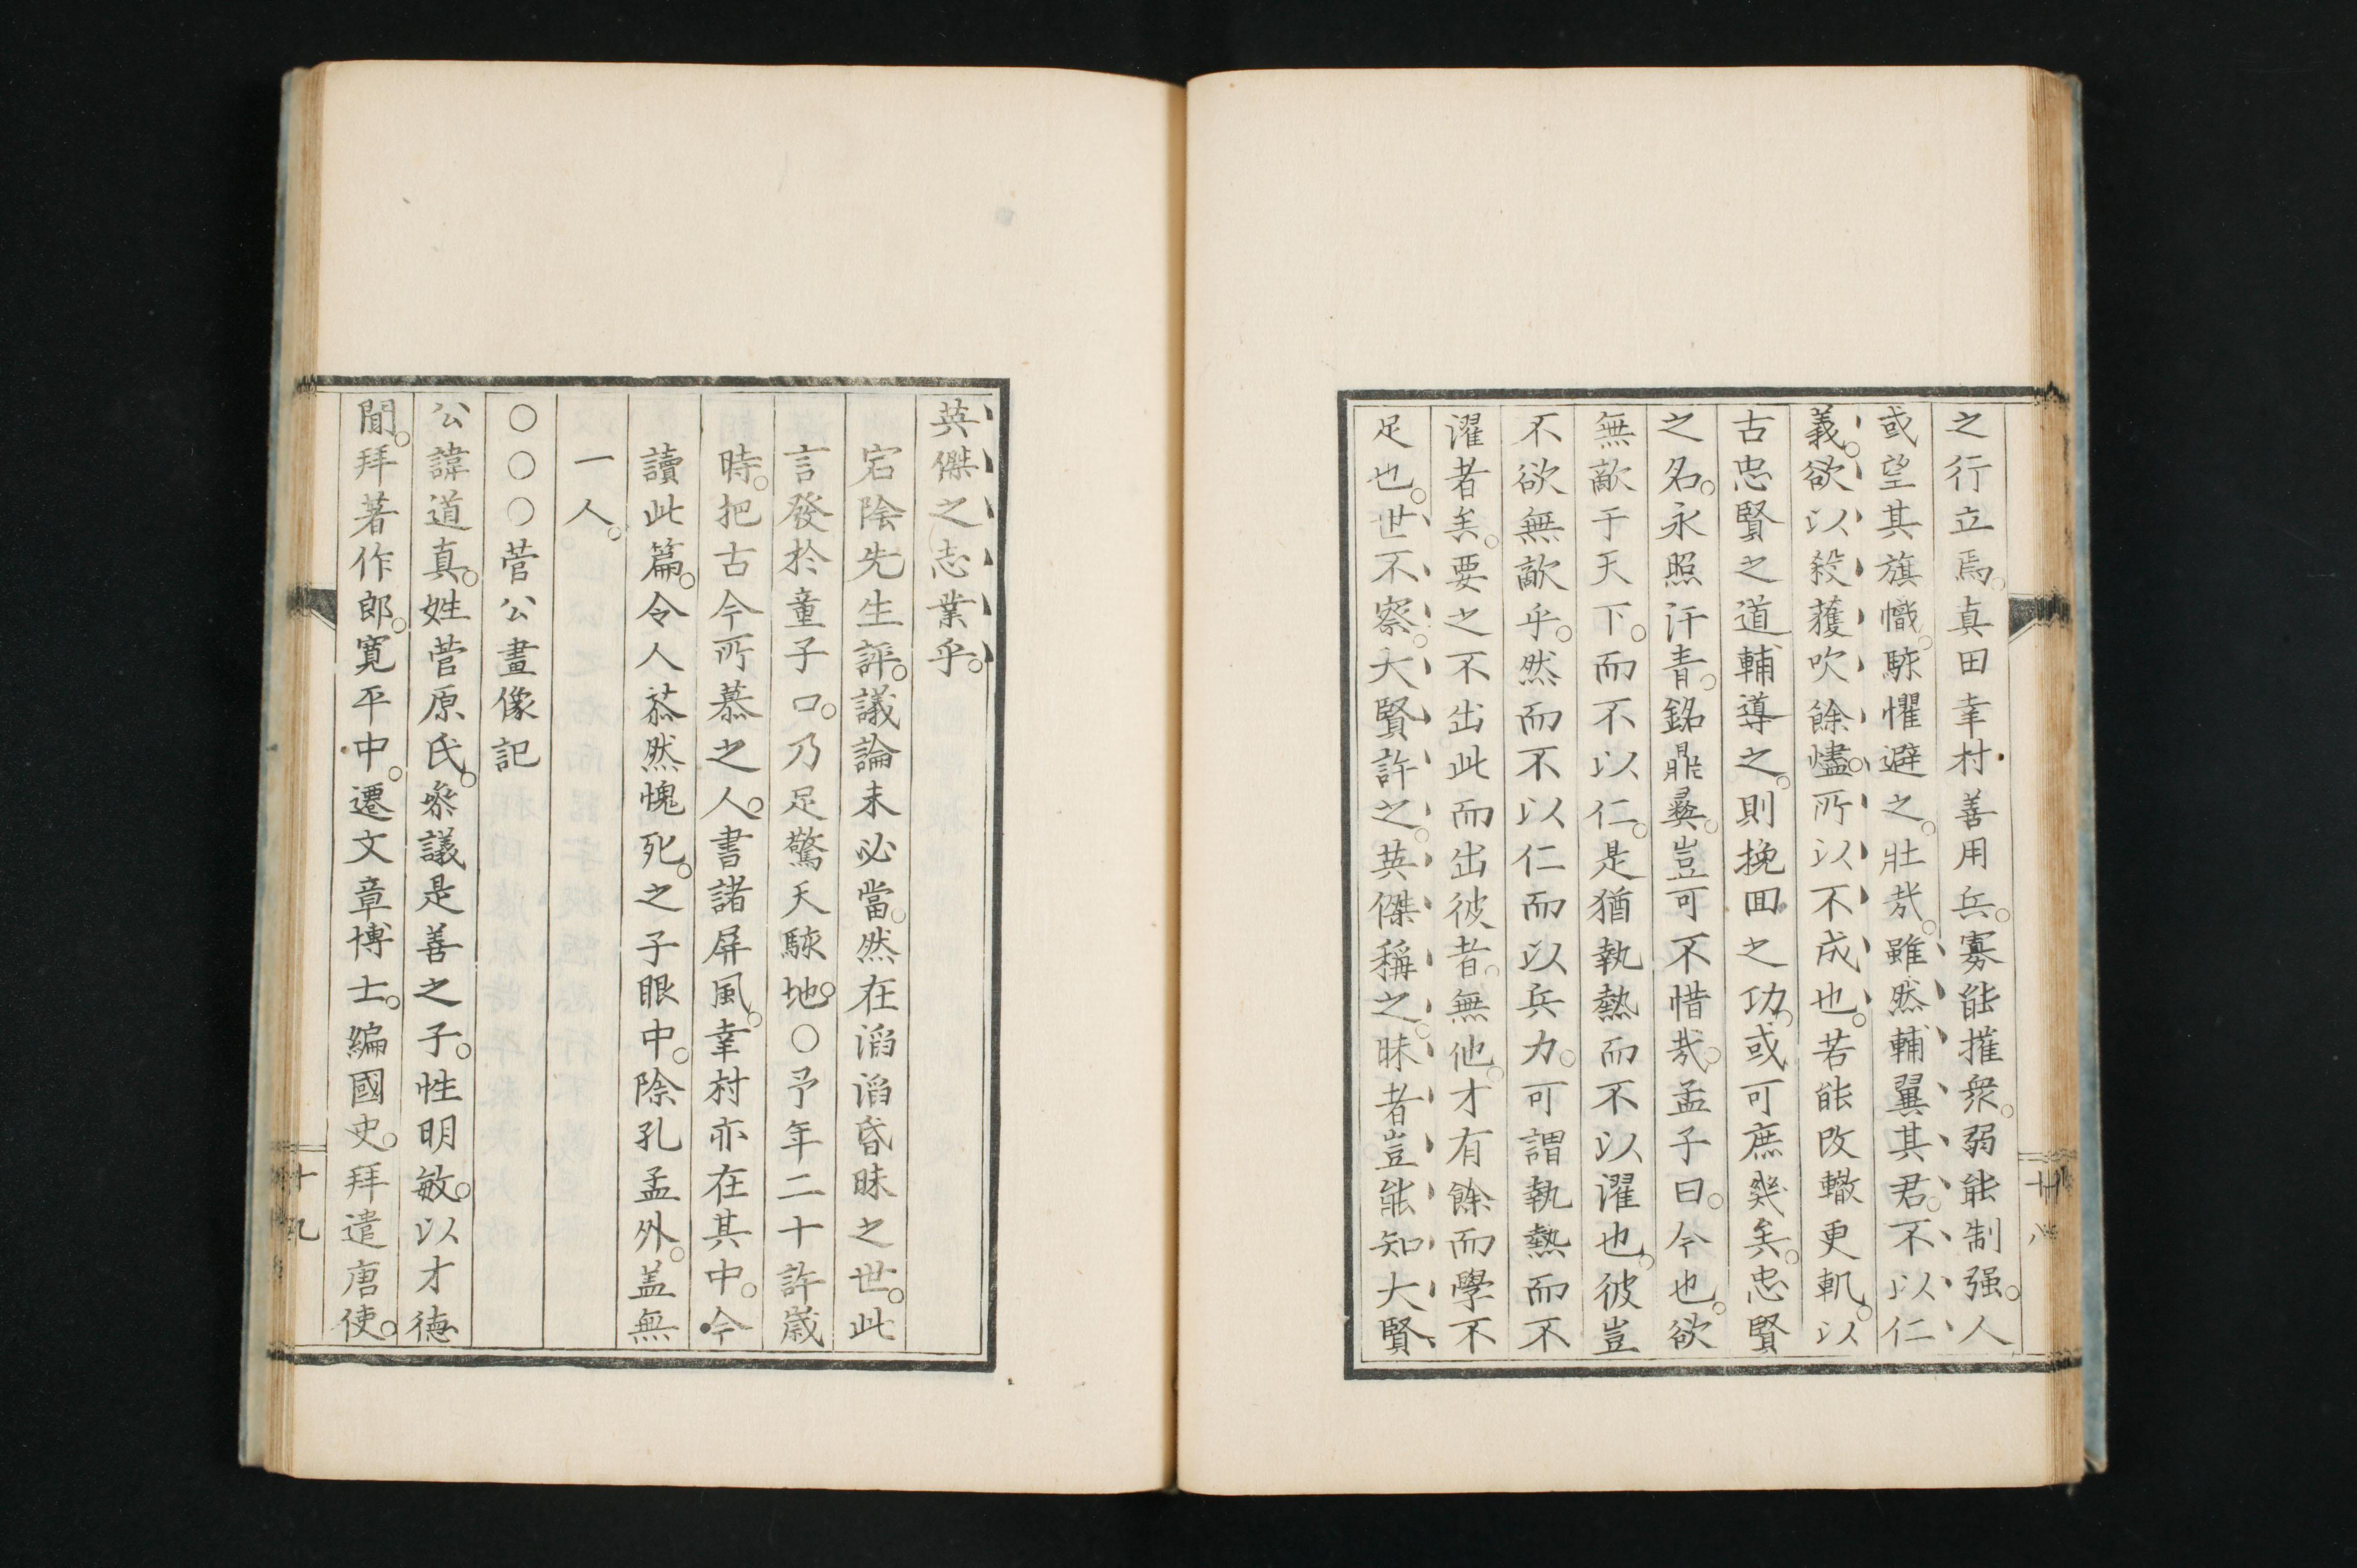 之行立焉。真田幸村善用兵。寡能摧衆。弱能制强。人
或望其旗幟。駭懼避之。壯哉。雖然輔翼其君。不以仁
義。欲以殺蒦吹餘燼。所以不成也。若能改轍更軌。以
古忠賢之道輔導之。則挽回之功。或可庶幾矣。忠賢
之名。永照汗青。銘鼎彝。豈可不惜哉。孟子曰。今也。欲
無敵于天下。而不以仁。是猶執熱而不以濯也。彼豈
不欲無敵乎。然而不以仁而以兵力。可謂執熱而不
濯者矣。要之不出此而出彼者。無他。才有餘而學不
足也。世不察。大賢許之。英傑稱之。昧者豈能知大賢
十八
英傑之志業乎。
宕陰先生評。議論未必當。然在滔滔昏昧之世。此
言發於童子口。乃足驚天駭地。〇予年二十許歲
時。把古今所慕之人。書諸屏風。幸村亦在其中。今
讀此篇。令人恭然愧死。之子眼中。除孔孟外。盖無
一人。
〇〇〇菅公畫像記
公諱道真。姓菅原氏。參議是善之子。性明敏。以才德
聞。拜著作郎。寛平中。遷文章博士。編國史。拜遣唐使。
十九